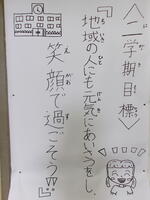 ＜二学期目標＞
『地域の人にも元気にあいさつをし、
笑顔で過ごそう!!』